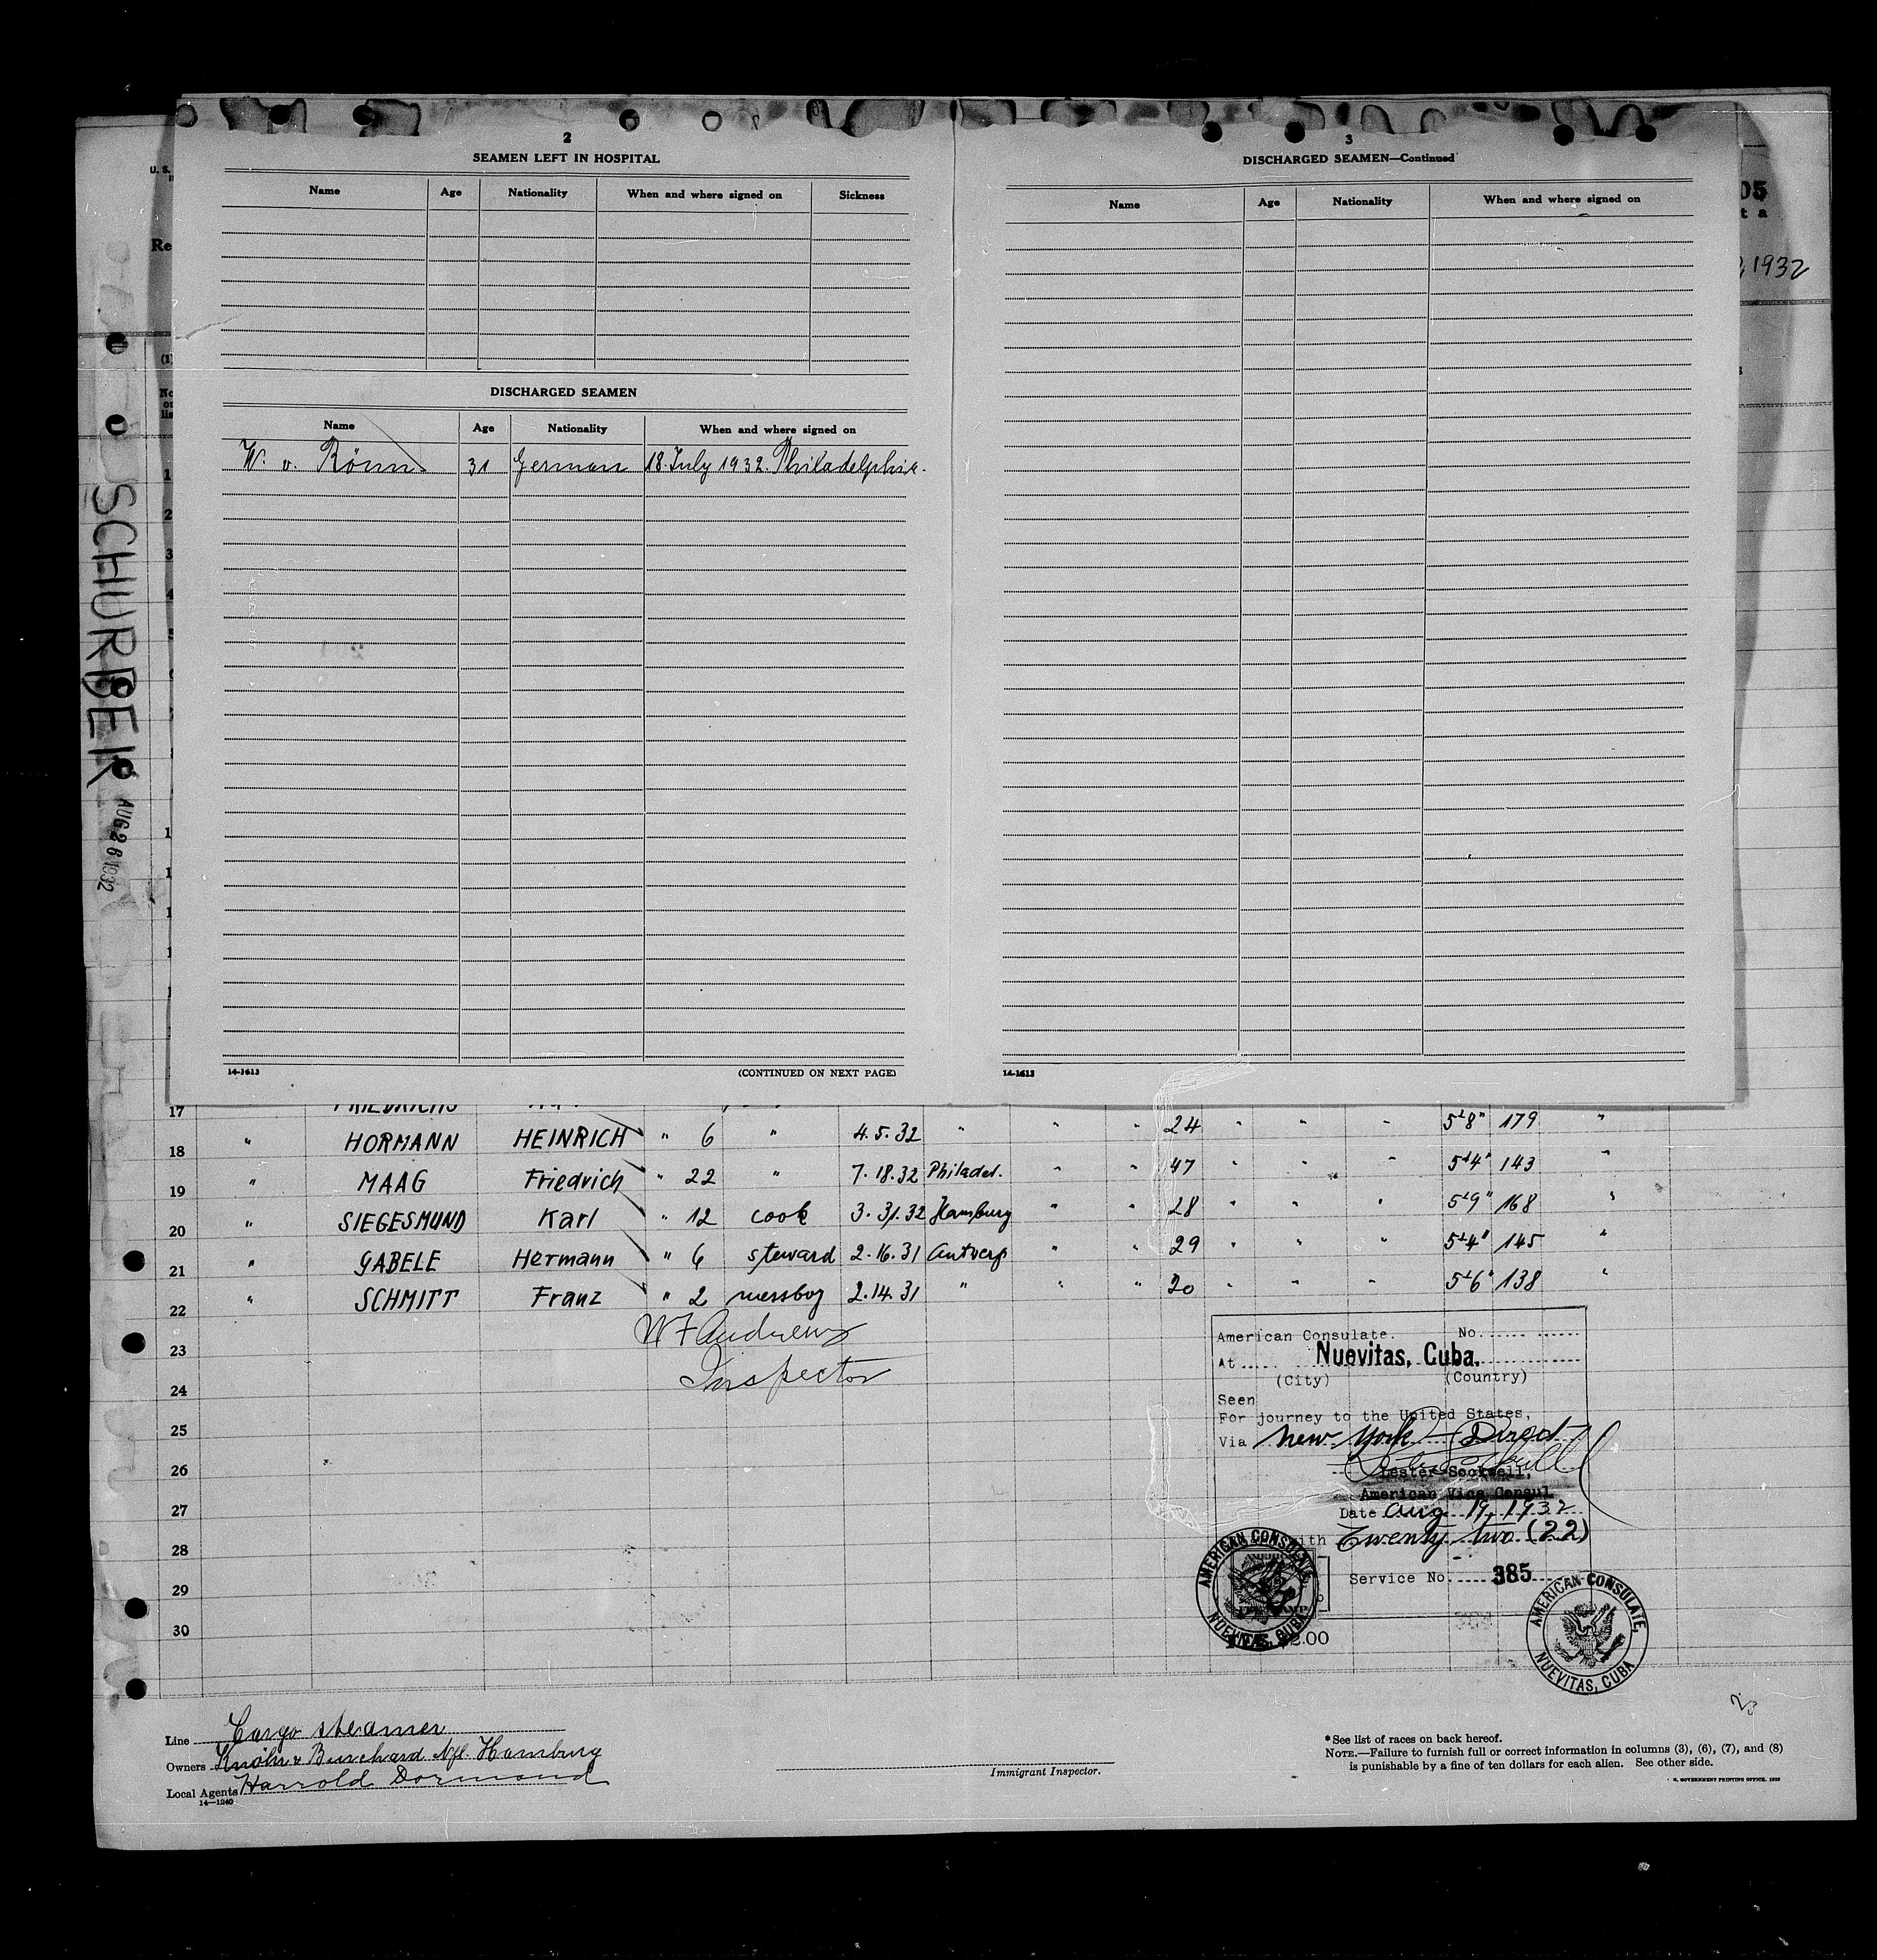 2
SEAMEN LEFT IN HOSPITAL
Name Age Nationality When and where signed on Sickness
DISCHARGED SEAMEN
Name Age Nationality When and where signed on
W. v. Rönn 31 German 18. July 1932. Philadelphia.
14-1613 (CONTINUED ON NEXT PAGE)
3
DISCHARGED SEAMEN—Continued
Name Age Nationality When and where signed on
14-1613
U. S.
Re
(1)
05
t a
1932
SCHURBEK
AUG 26 1932
17 FRIEDRICHS
18 " HORMANN HEINRICH " 6 " 4.5.32 " " " 24 " " " 5'8" 179 "
19 " MAAG Friedrich " 22 " 7.18.32 Philadel. " " 47 " " " 5'4" 143 "
20 " SIEGESMUND Karl " 12 cook 3.31.32 Hamburg " " 28 " " " 5'9" 168 "
21 " GABELE Hermann " 6 steward 2.16.31 Antverp " " 29 " " " 5'4" 145 "
22 " SCHMITT Franz " 2 messboy 2.14.31 " " " 20 " " " 5'6" 138 "
23
24
25
26
27
28
29
30
W F Andrews
Inspector
American Consulate. No.
At Nuevitas, Cuba.
(City) (Country)
Seen
For journey to the United States,
Via New York - Direct
Lester Sookwell,
American Vice Consul
Date Aug 19, 1932
ith Twenty two (22)
Service No. 385
AMERICAN CONSULATE, NUEVITAS, CUBA
2.00
AMERICAN CONSULATE, NUEVITAS, CUBA
Line Cargo steamer
Owners Knöhr & Burchard Nfl. Hamburg
Local Agents Harrold Dormond
14—1240
Immigrant Inspector.
*See list of races on back hereof.
NOTE.—Failure to furnish full or correct information in columns (3), (6), (7), and (8)
is punishable by a fine of ten dollars for each alien. See other side.
GOVERNMENT PRINTING OFFICE